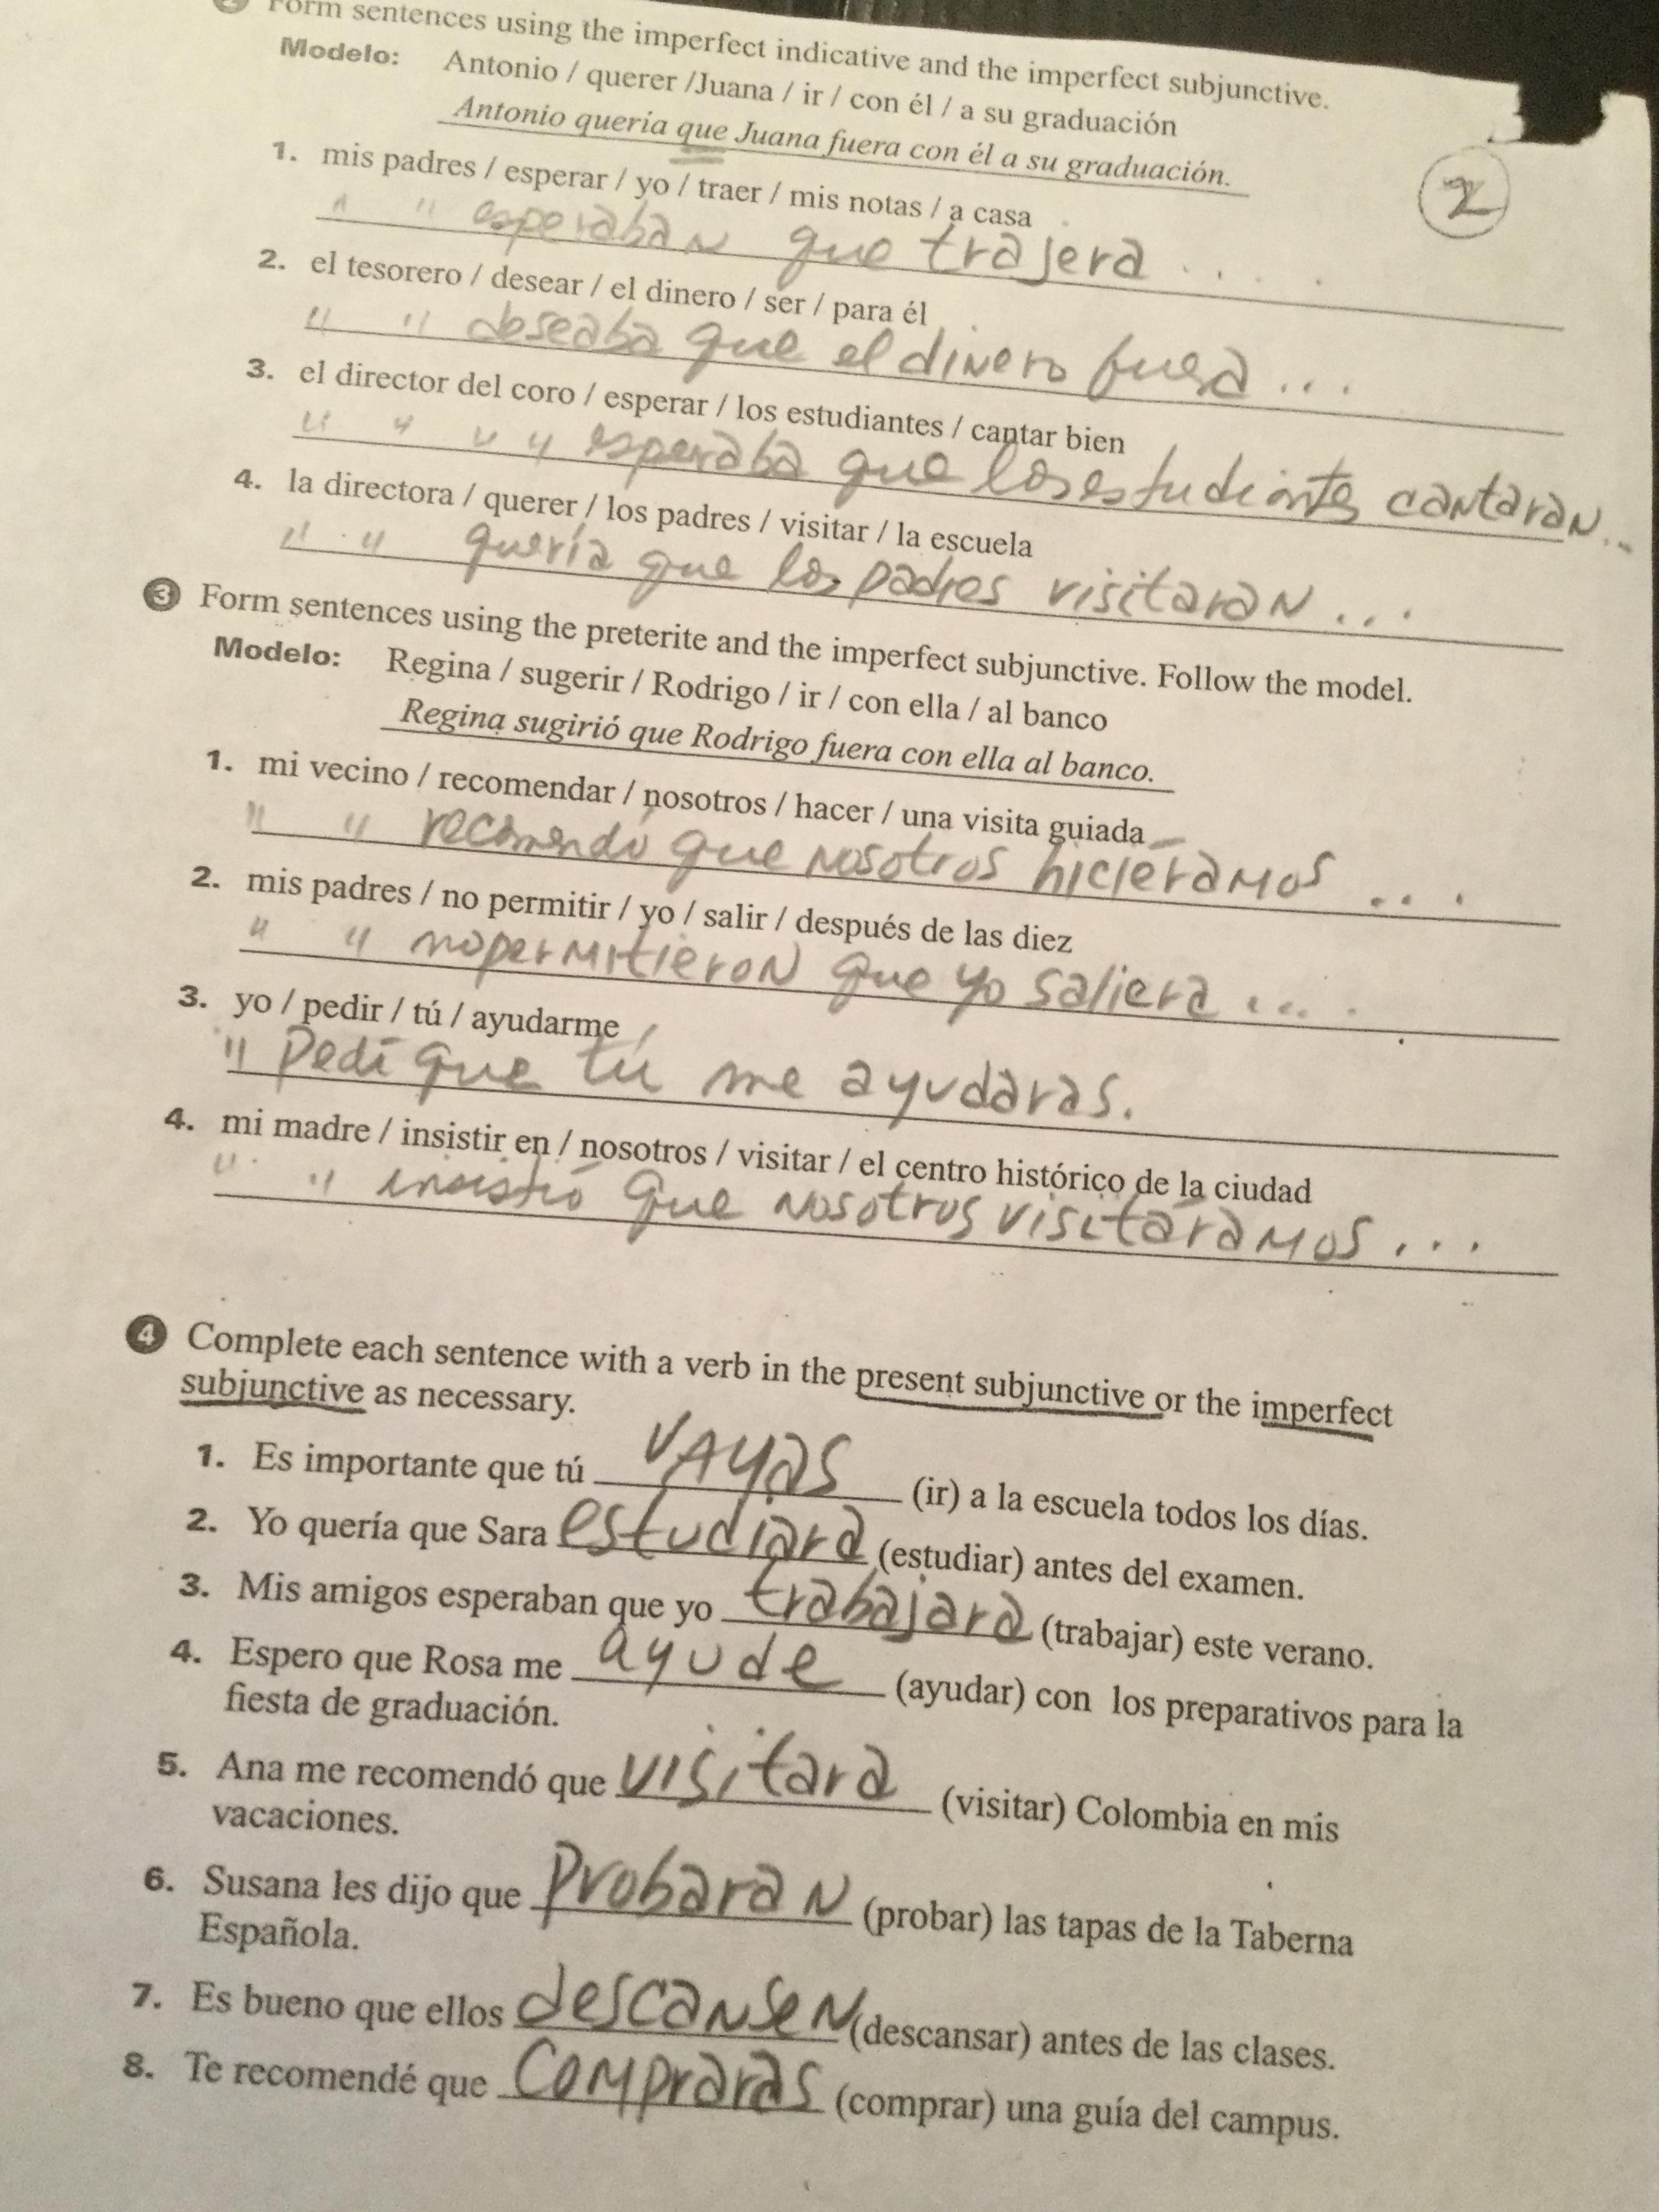 2 Form sentences using the imperfect indicative and the imperfect subjunctive.
Modelo: Antonio / querer /Juana / ir / con él / a su graduación
Antonio quería que Juana fuera con él a su graduación.
2
1. mis padres / esperar / yo / traer / mis notas / a casa
" " esperaban que trajera . . . .
2. el tesorero / desear / el dinero / ser / para él
" " deseaba que el dinero fuera ...
3. el director del coro / esperar / los estudiantes / cantar bien
" " " " esperaba que los estudiantes cantaran...
4. la directora / querer / los padres / visitar / la escuela
" " quería que los padres visitaran ...
3 Form sentences using the preterite and the imperfect subjunctive. Follow the model.
Modelo: Regina / sugerir / Rodrigo / ir / con ella / al banco
Regina sugirió que Rodrigo fuera con ella al banco.
1. mi vecino / recomendar / nosotros / hacer / una visita guiada
" " recomendó que nosotros hiciéramos ...
2. mis padres / no permitir / yo / salir / después de las diez
" " no permitieron que yo saliera ....
3. yo / pedir / tú / ayudarme
" Pedí que tú me ayudaras.
4. mi madre / insistir en / nosotros / visitar / el centro histórico de la ciudad
" " insistió que nosotros visitáramos ...
4 Complete each sentence with a verb in the present subjunctive or the imperfect
subjunctive as necessary.
1. Es importante que tú vayas (ir) a la escuela todos los días.
2. Yo quería que Sara estudiara (estudiar) antes del examen.
3. Mis amigos esperaban que yo trabajara (trabajar) este verano.
4. Espero que Rosa me ayude (ayudar) con los preparativos para la
fiesta de graduación.
5. Ana me recomendó que visitara (visitar) Colombia en mis
vacaciones.
6. Susana les dijo que probaran (probar) las tapas de la Taberna
Española.
7. Es bueno que ellos descansen (descansar) antes de las clases.
8. Te recomendé que compraras (comprar) una guía del campus.